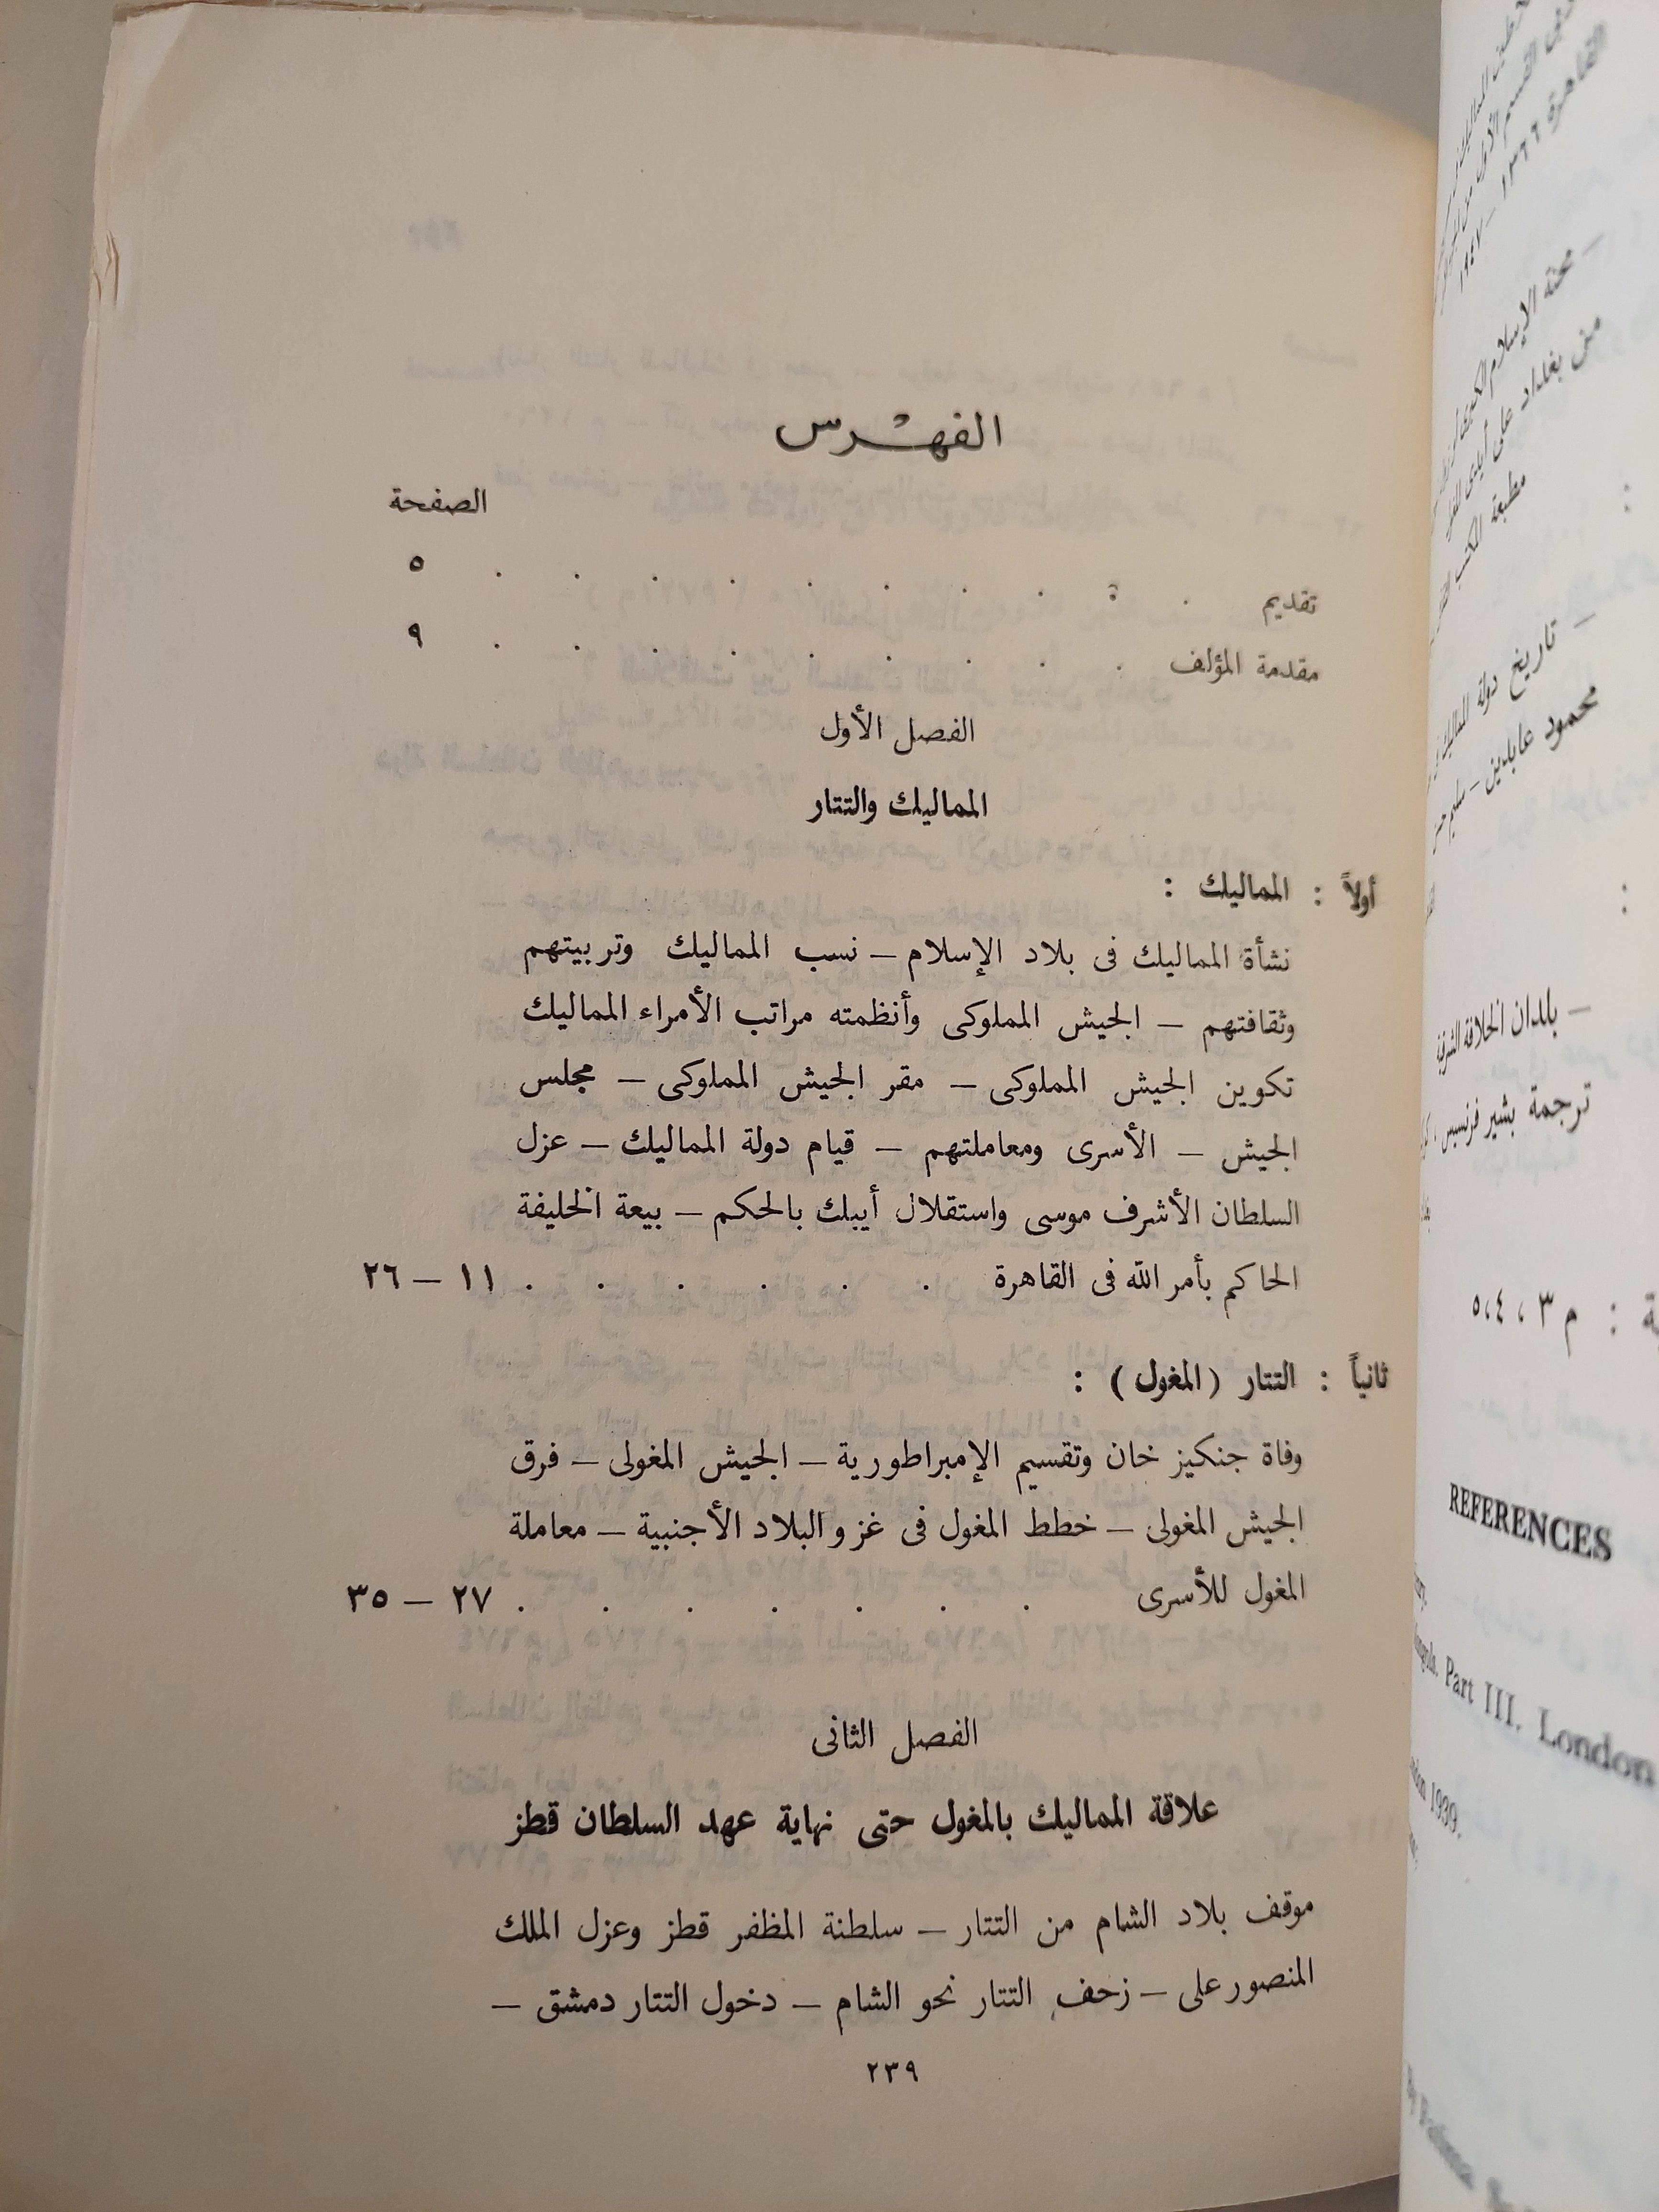 الفهْرس
الصفحة
تقديم . . . . . . . . . . ٥
مقدمة المؤلف . . . . . . . . . ٩
الفصل الأول
المماليك والتتار
أولاً : المماليك :
نشأة المماليك فى بلاد الإسلام – نسب المماليك وتربيتهم
وثقافتهم – الجيش المملوكى وأنظمته مراتب الأمراء المماليك
تكوين الجيش المملوكى – مقر الجيش المملوكى – مجلس
الجيش – الأسرى ومعاملتهم – قيام دولة المماليك – عزل
السلطان الأشرف موسى واستقلال أيبك بالحكم – بيعة الخليفة
الحاكم بأمر الله فى القاهرة . . . . . . ١١ – ٢٦
ثانياً : التتار ( المغول ) :
وفاة جنكيز خان وتقسيم الإمبراطورية – الجيش المغولى – فرق
الجيش المغولى – خطط المغول فى غزو البلاد الأجنبية – معاملة
المغول للأسرى . . . . . . . ٢٧ – ٣٥
الفصل الثانى
علاقة المماليك بالمغول حتى نهاية عهد السلطان قطز
موقف بلاد الشام من التتار – سلطنة المظفر قطز وعزل الملك
المنصور على – زحف التتار نحو الشام – دخول التتار دمشق –
٢٣٩
القاهرة ١٣٦٦ – ١٩٤٧
– محنة الإسلام الكبرى
بغداد على أيدى
مطبعة
– تاريخ دولة المماليك فى
محمود عابدين – سليم
:
– بلدان الخلافة الشرقية
ترجمة بشير فرنسيس ،
: م ٣ ، ٤ ، ٥
REFERENCES
Part III. London
1939.